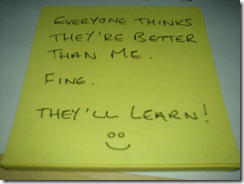 EVERYONE THINKS
THEY'RE BETTER
THAN ME.
FINE.
THEY'LL LEARN!